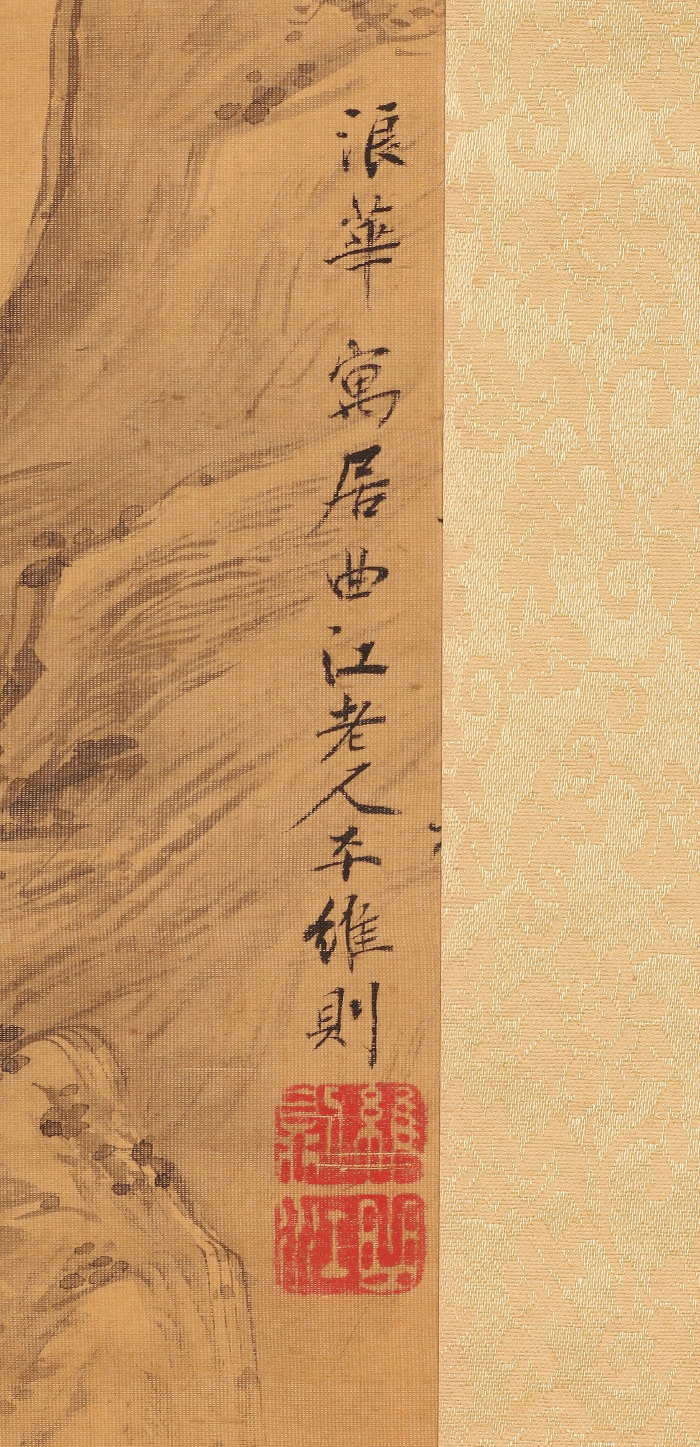 浪華寓居曲江老人本維則